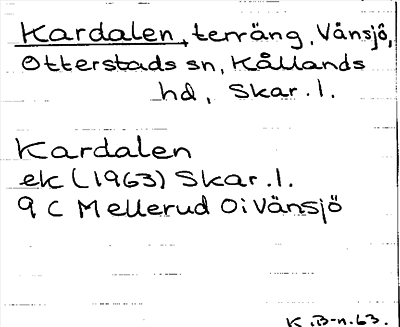 Kardalen, terräng, Vånsjö,
Otterstads sn, Kållands
hd, Skar.l.
Kardalen
ek (1963) Skar.l.
9 C Mellerud Oi Vänsjö
K.B-n.63.